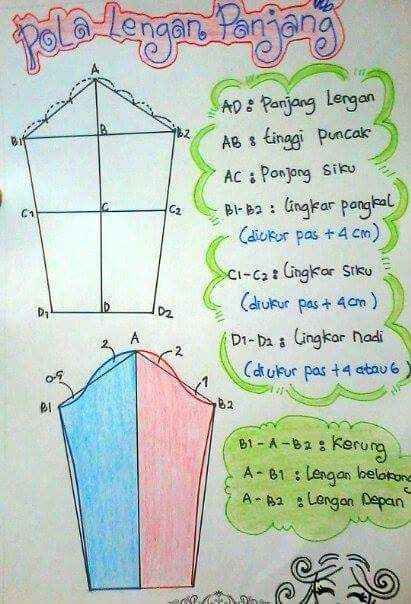 Pola Lengan Panjang
A
B1
B
B2
C1
C
C2
D1
D
D2
AD : Panjang Lengan
AB : tinggi Puncak
AC : Panjang Siku
B1-B2 : Lingkar pangkal
(diukur pas + 4 cm)
C1-C2 : Lingkar Siku
(diukur pas + 4cm)
D1-D2 : Lingkar Nadi
(diukur pas +4 atau 6)
A
2
2
0.5
1
B1
B2
B1 - A - B2 : Kerung
A - B1 : Lengan belakang
A - B2 : Lengan Depan